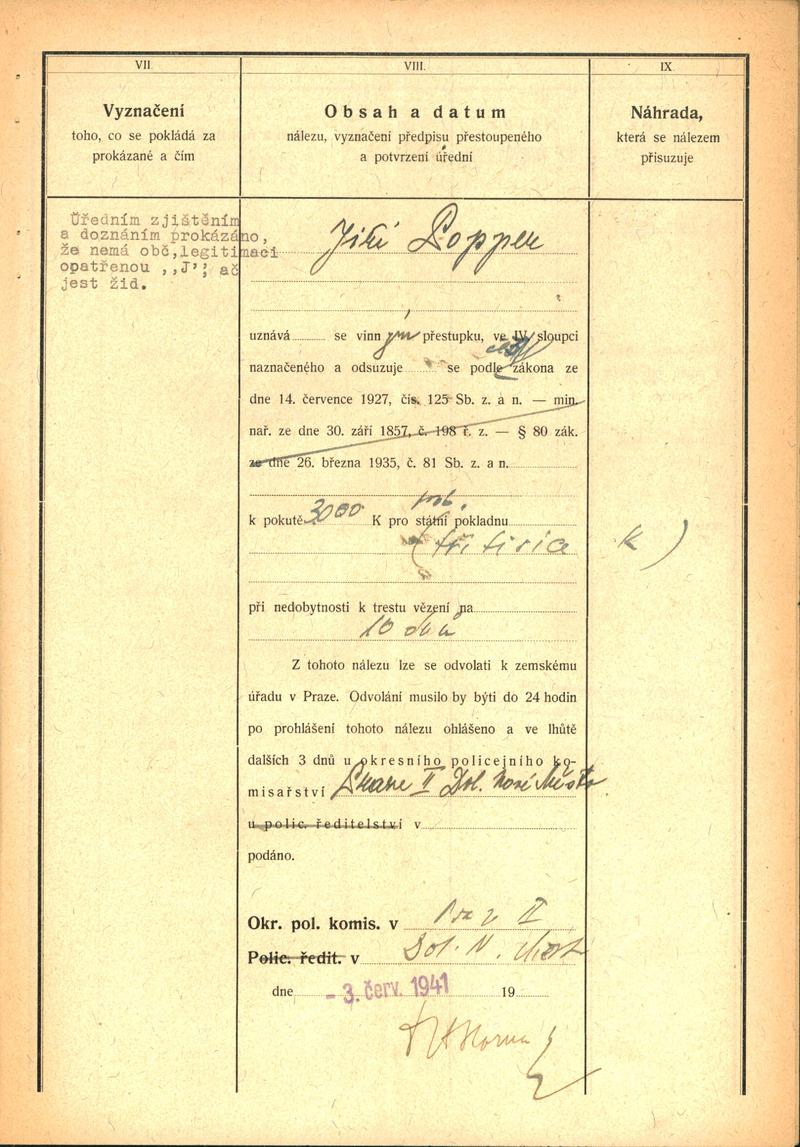 VII.
Vyznačení
toho, co se pokládá za
prokázané a čím
VIII.
Obsah a datum
nálezu, vyznačení předpisu přestoupeného
a potvrzení úřední
IX.
Náhrada,
která se nálezem
přisuzuje
Úředním zjištěním
a doznáním prokázáno,
že nemá obč,legitimaci
opatřenou ,,J'', ač
jest žid.
Jiří Popper
uznává se vinným přestupku, ve IV. sloupci
naznačeného a odsuzuje se podle zákona ze
dne 14. července 1927, čís. 125 Sb. z. a n. — min.
nař. ze dne 30. září 1857, č. 198 ř. z. — § 80 zák.
ze dne 26. března 1935, č. 81 Sb. z. a n.
k pokutě 3000 K pro státní pokladnu
(tři tisíce K)
při nedobytnosti k trestu vězení na
10 dnů
Z tohoto nálezu lze se odvolati k zemskému
úřadu v Praze. Odvolání musilo by býti do 24 hodin
po prohlášení tohoto nálezu ohlášeno a ve lhůtě
dalších 3 dnů u okresního policejního ko-
misařství Praze II Dol. Nové Město
u polic. ředitelství v
podáno.
Okr. pol. komis. v Praze II
Polic. ředit. v Dol. N. Měst
dne - 3. červ. 1941 19